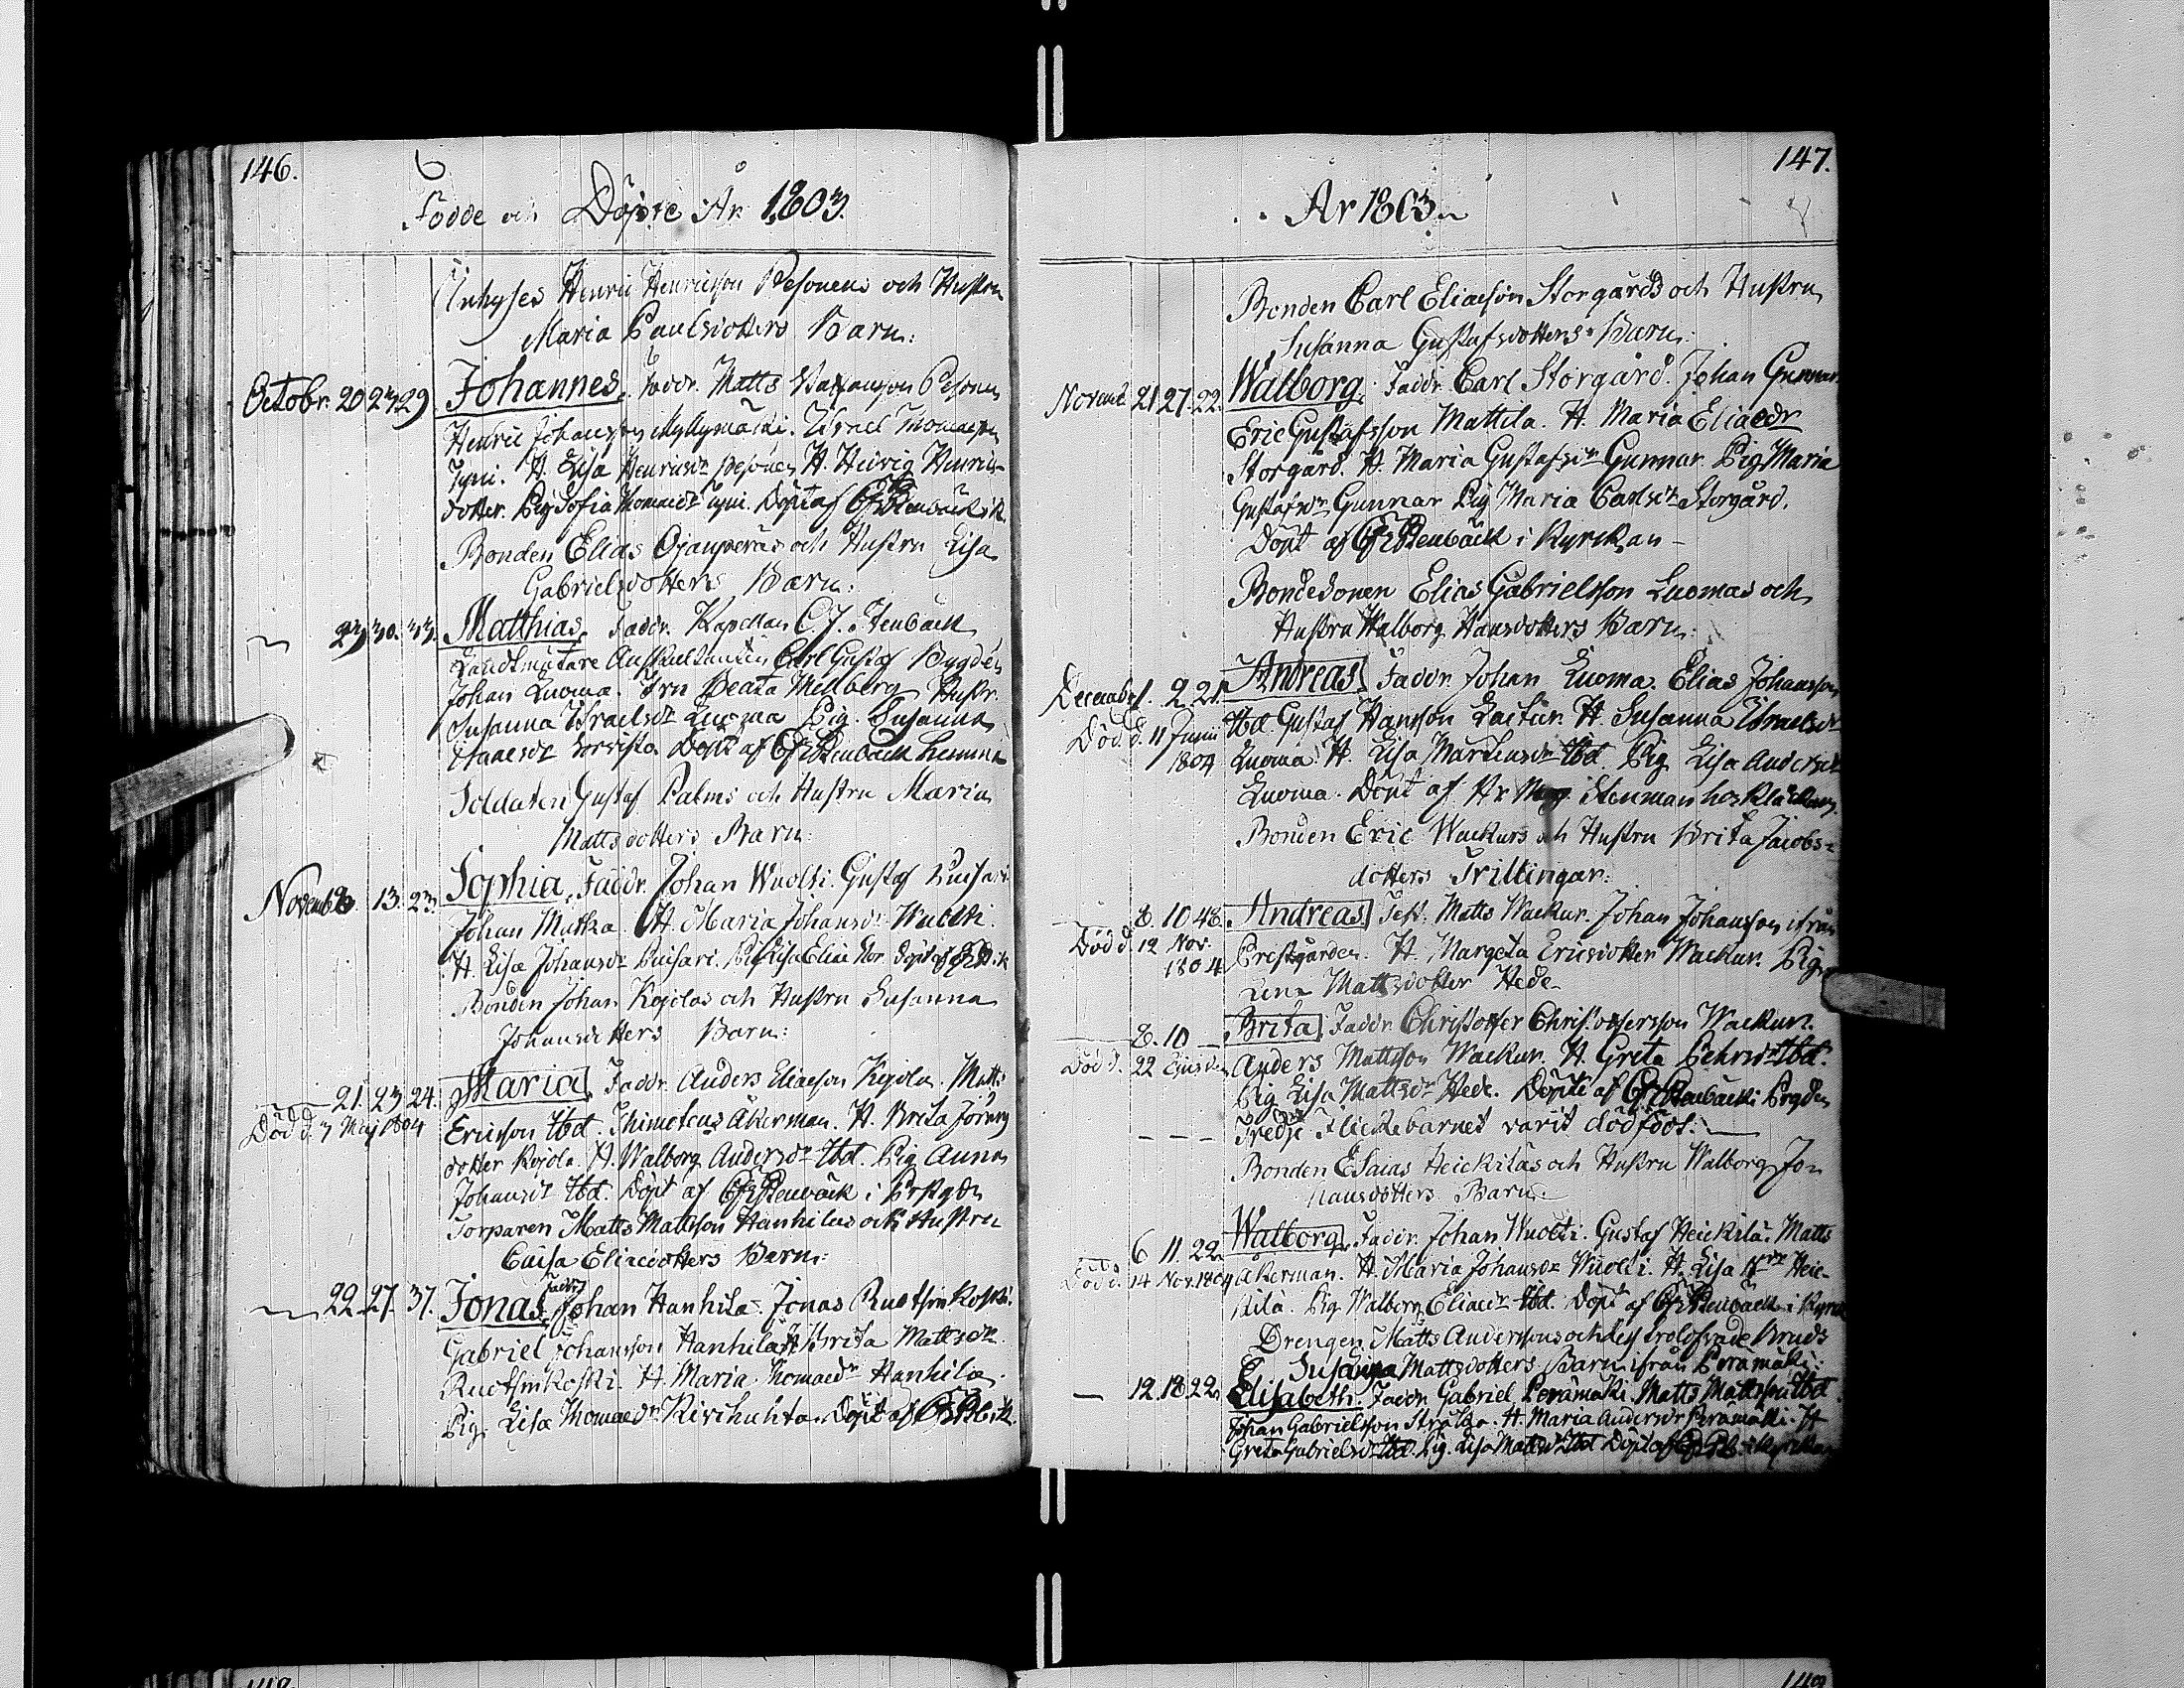 146.
Födde och Döpte År 1803.
Inhyses Henric Henricsson Pesonens och Hustru
Maria Paulsdotters Barn:
Octobr. 20 23 29. Johannes. Faddr. Matts Pesonen
Henric Johansson Myllymäki. Israel Thomasson
Tyni. H. Lisa Henricsdr Pesonen H. Hedvig Henrics-
dotter. Pig Sofia Thomaedr Tyni. Döpt af
Bonden Elias Ojanperäs och Hustru Lisa
Gabrielsdotters Barn:
29 30. 33. Matthias. Faddr. Kapellan C. J. Stenbäck
Landtmätare Auskultanten Carl Gustaf Bygdén
Johan Luoma. Fru Beata Mellberg Hustr.
Susanna Israelsdr Luoma Pig. Susanna
Döpt af CFStenbäck hemma
Soldaten Gustaf Palms och Hustru Maria
Mattsdotters Barn:
Novemb. 13. 23. Sophia. Faddr. Johan Wuolti. Gustaf Luisari
Johan Matka. H. Maria Johansdr Wuolti.
H. Lisa Johansdr Luisari. Pig Lisa Eliae Döpt af
Bonden Johan Kojolas och Hustru Susanna
Johansdotters Barn:
21. 23. 24. Maria. Faddr. Anders Eliaeson Kojola. Matts
Död d. 7 Maj 1804 Ericsson Ibd. Thimoteus Åkerman. H. Brita Jöran
dotter Kojola. H. Walborg Andersdr Ibd. Pig Anna
Johansdr Ibd. Döpt af CFStenbäck i Prstgdn
Torparen Matts Mattsson Hanhilas och Hustru
Caisa Eliaedotters Barn:
22. 27. 37. Jonas. Faddr. Johan Hanhila. Jonas Ruotsinkoski.
Gabriel Johansson Hanhila H. Brita Mattsdr
Ruotsinkoski. H. Maria Thomaedr Hanhila.
Pig. Lisa Thomaedr Kirchuhta. Döpt af
147.
År 1803.
Bonden Carl Eliaeson Storgårds och Hustru
Susanna Gustafsdotters Barn:
Novemb. 21 27. 22. Walborg. Faddr. Carl Storgård. Johan Gunnar
Eric Gustafsson Mattila. H. Maria Eliaedr
Storgård. H. Maria Gustafsdr Gunnar. Pig Maria
Gustafsdr Gunnar Pig Maria Carlsdr Storgård.
Döpt af CFStenbäck i Kyrckan
Bondesonen Elias Gabrielsson Luomas och
Hustru Walborg Hansdotters Barn:
December 1. 2. 21. Andreas. Faddr. Johan Luoma. Elias Johansson
Död d. 11 Junii Ibd. Gustaf Hansson H. Susanna Israelsdr
1804 Luoma. H. Lisa Mårtensdr Ibd. Pig Lisa Andersdr
Luoma. Döpt af Hr Mag. Stenman hos Klåckaren.
Bonden Eric Wackurs och Hustru Brita Jacobs-
dotters Trillingar:
8. 10 48. Andreas. Test. Matts Wackur. Johan Johansson ifrån
Död d. 12 Nov. Prestgården. H. Margeta Ericsdotter Wackur. Pig
1804 Lena Mattsdotter Hede
8. 10 Brita. Faddr. Christoffer Christoffersson Wackur.
Död d. 22 Ejusdem Anders Mattsson Wackur. H. Greta Pehrsdr Ibd.
Pig Lisa Mattsdr Hede. Döpte af CFStenbäck i Prgden
Tredje Flickebarnet varit dödfödt.
Bonden Esaias Heickiläs och Hustru Walborg Jo-
hansdotters Barn.
6 11. 22. Walborg. Faddr. Johan Wuolti. Gustaf Heickilä. Matts
Död d. 14 Nov. 1804 Åkerman. H. Maria Johansdr Wuolti. H. Lisa Heic-
kilä. Pig Walborg Eliaedr Ibd. Döpt af CFStenbäck i Kyrck
Drengen Matts Anderssons och dess trolofvade Bruds
Susanna Mattsdotters Barn ifrån Perämäki:
12. 18. 22. Elisabeth. Faddr. Gabriel Perämäki. Matts Mattsson Ibd
Johan Gabrielsson Strålka. H. Maria Andersdr Perämäki. H
Greta Gabrielsdr Ibd. Pig. Lisa Mattsdr Ibd Döpt af i Kyrckan
148
149